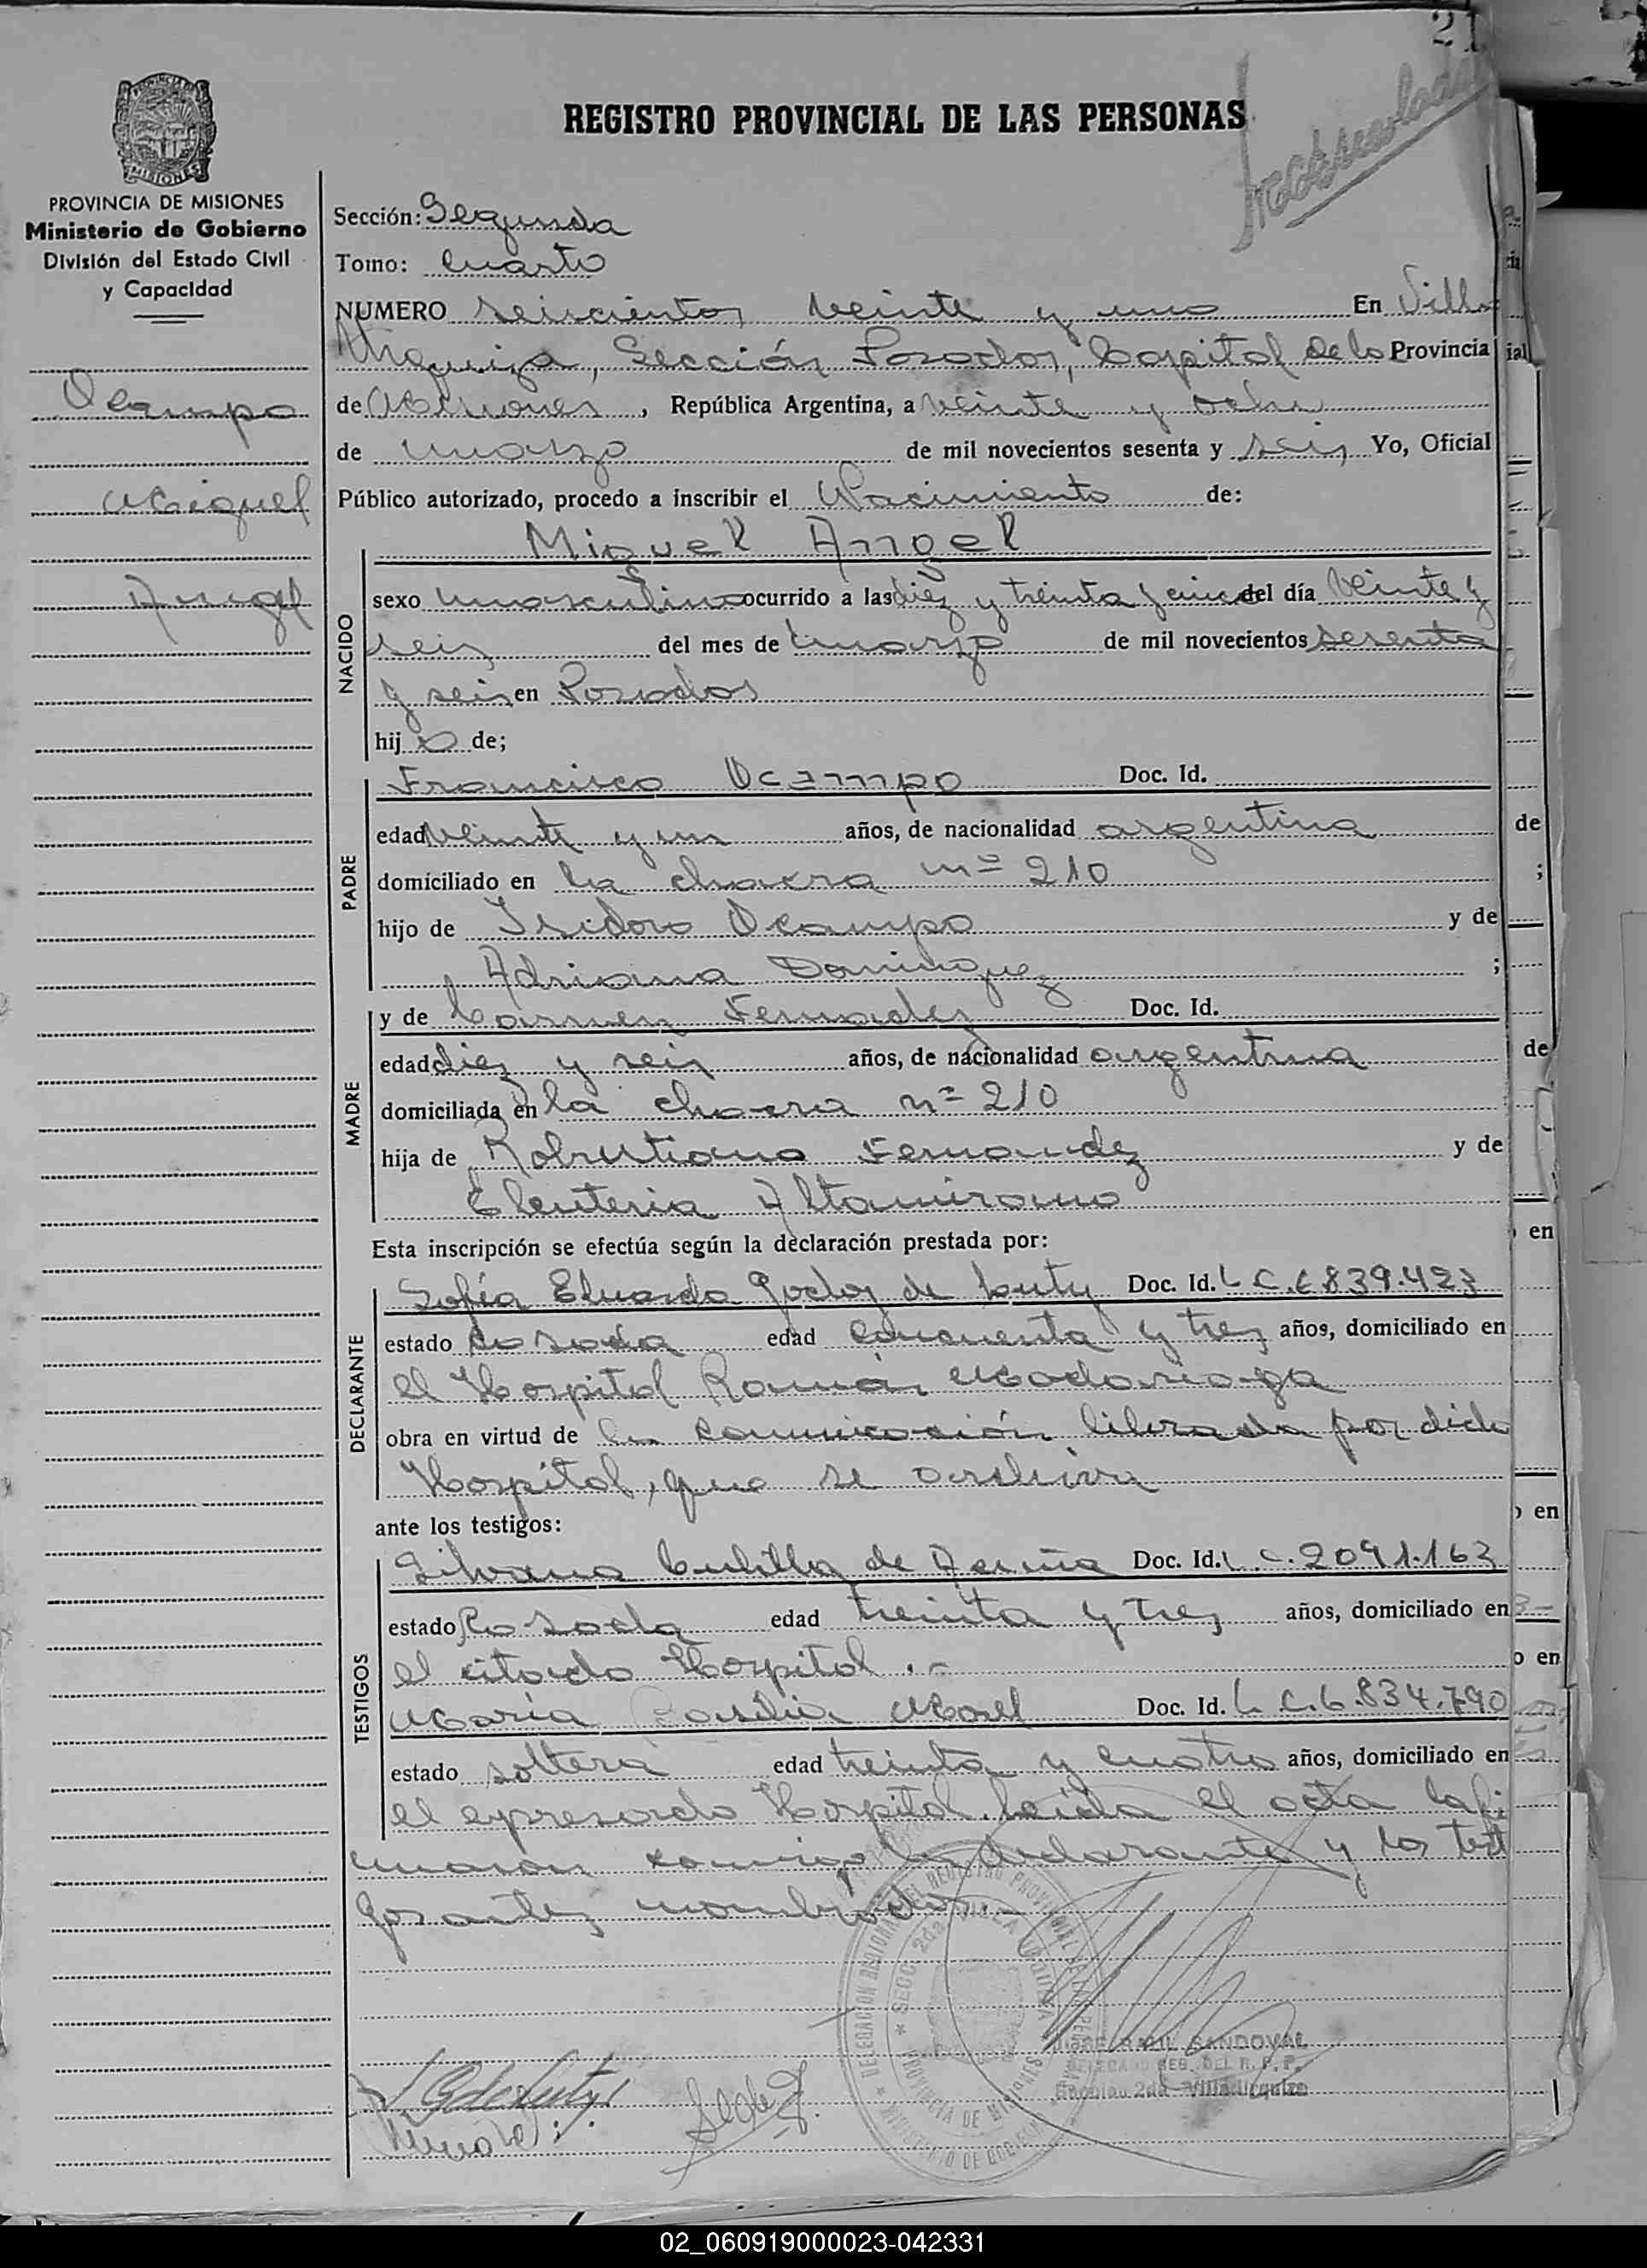 21
REGISTRO PROVINCIAL DE LAS PERSONAS
MISIONES
PROVINCIA DE MISIONES
Ministerio de Gobierno
División del Estado Civil
y Capacidad
Ocampo
Miguel
Angel
Sección: Segunda
Tomo: Cuarto
NUMERO seiscientos veinte y uno En Villa
Urquiza, Sección Posadas, Capital de la Provincia
de Misiones, República Argentina, a veinte y ocho
de marzo de mil novecientos sesenta y seis Yo, Oficial
Público autorizado, procedo a inscribir el Nacimiento de:
Miguel Angel
NACIDO
sexo masculino ocurrido a las diez y treinta y cinco del día veinte y
seis del mes de marzo de mil novecientos sesenta
y seis en Posadas
hijo de;
PADRE
Francisco Ocampo Doc. Id.
edad veinte y un años, de nacionalidad argentina
domiciliado en la chacra nº 210
hijo de Isidoro Ocampo y de
Adriana Dominguez ;
MADRE
y de Carmen Fernandez Doc. Id.
edad diez y seis años, de nacionalidad argentina
domiciliada en la chacra nº 210
hija de Robustiano Fernandez y de
Eleuteria Altamirano
Esta inscripción se efectúa según la declaración prestada por:
DECLARANTE
Sofía Eduarda Godoy de Duty Doc. Id. L.C.6839.423
estado casada edad cincuenta y tres años, domiciliado en
el Hospital Ramón Madariaga
obra en virtud de la comunicación librada por dicho
Hospital, que se archiva
ante los testigos:
TESTIGOS
Silvana Cubilla de Acuña Doc. Id. L.C.2091.163
estado Casada edad treinta y tres años, domiciliado en
el citado Hospital.-
María Doc. Id. L.C.6.834.790
estado soltera edad treinta y cuatro años, domiciliado en
el expresado Hospital. Leída el acta la fir
maron conmigo la declarante y los testi
gos antes nombrados.-
JORGE RAUL SANDOVAL
DELEGADO REG. DEL R. P. P.
Sección 2da - Villa Urquiza
02_060919000023-042331